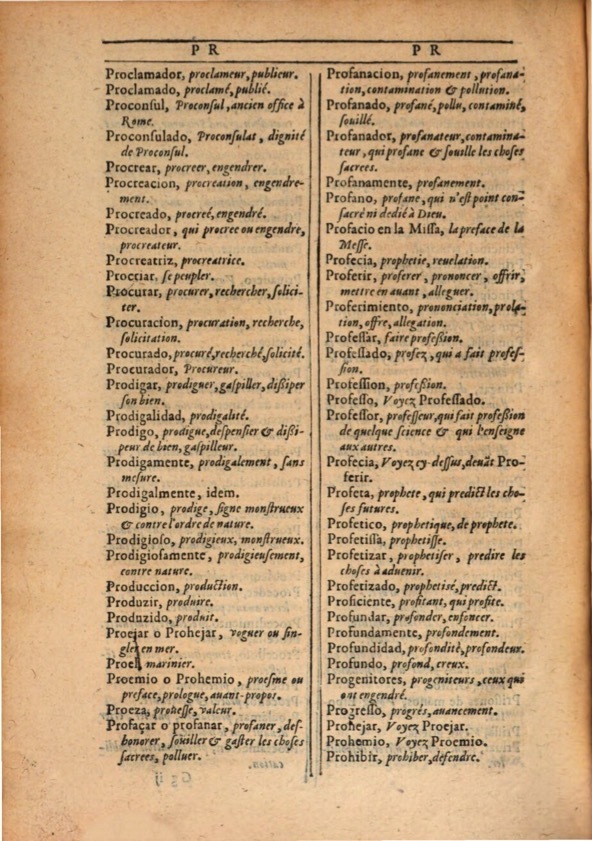 P R
Proclamador, proclameur, publieur.
Proclamado, proclamé, publié.
Proconsul, Proconsul, ancien office à
Rome.
Proconsulado, Proconsulat, dignité
de Proconsul.
Procrear, procreer, engendrer.
Procreacion, procreation, engendre-
ment.
Procreado, procreé, engendré.
Procreador, qui procree ou engendre,
procreateur.
Procreatriz, procreatrice.
Procriar, se peupler.
Procurar, procurer, rechercher, solici-
ter.
Procuracion, procuration, recherche,
solicitation.
Procurado, procuré, recherché, solicité.
Procurador, Procureur.
Prodigar, prodiguer, gaspiller, dißiper
son bien.
Prodigalidad, prodigalité.
Prodigo, prodigue, despensier & dißi-
peur de bien, gaspilleur.
Prodigamente, prodigalement, sans
mesure.
Prodigalmente, idem.
Prodigio, prodige, signe monstrueux
& contre l'ordre de nature.
Prodigioso, prodigieux, monstrueux.
Prodigiosamente, prodigieusement,
contre nature.
Produccion, production.
Produzir, produire.
Produzido, produit.
Proejar o Prohejar, voguer ou sin-
gler en mer.
Proel, marinier.
Proemio o Prohemio, proesme ou
preface, prologue, auant-propos.
Proeza, prouesse, valeur.
Profaçar o profanar, profaner, des-
honorer, souiller & gaster les choses
sacrees, polluer.
P R
Profanacion, profanement, profana-
tion, contamination & pollution.
Profanado, profané, pollu, contaminé,
souillé.
Profanador, profanateur, contamina-
teur, qui profane & souille les choses
sacrees.
Profanamente, profanement.
Profano, profane, qui n'est point con-
sacré ni dedié à Dieu.
Profacio en la Missa, la preface de la
Messe.
Profecia, prophetie, reuelation.
Proferir, proferer, prononcer, offrir,
mettre en auant, alleguer.
Proferimiento, prononciation, prola-
tion, offre, allegation.
Professar, faire profeßion.
Professado, profez, qui a fait profes-
sion.
Profession, profeßion.
Professo, Voyez Professado.
Professor, professeur, qui fait profeßion
de quelque science & qui l'enseigne
aux autres.
Profecia, Voyez cy-dessus, deuãt Pro-
ferir.
Profeta, prophete, qui predict les cho-
ses futures.
Profetico, prophetique, de prophete.
Profetissa, prophetisse.
Profetizar, prophetiser, predire les
choses à aduenir.
Profetizado, prophetisé, predict.
Proficiente, profitant, qui profite.
Profundar, profonder, enfoncer.
Profundamente, profondement.
Profundidad, profondité, profondeur.
Profundo, profond, creux.
Progenitores, progeniteurs, ceux qui
ont engendré.
Progresso, progrés, auancement.
Prohejar, Voyez Proejar.
Prohemio, Voyez Proemio.
Prohibir, prohiber, defendre.